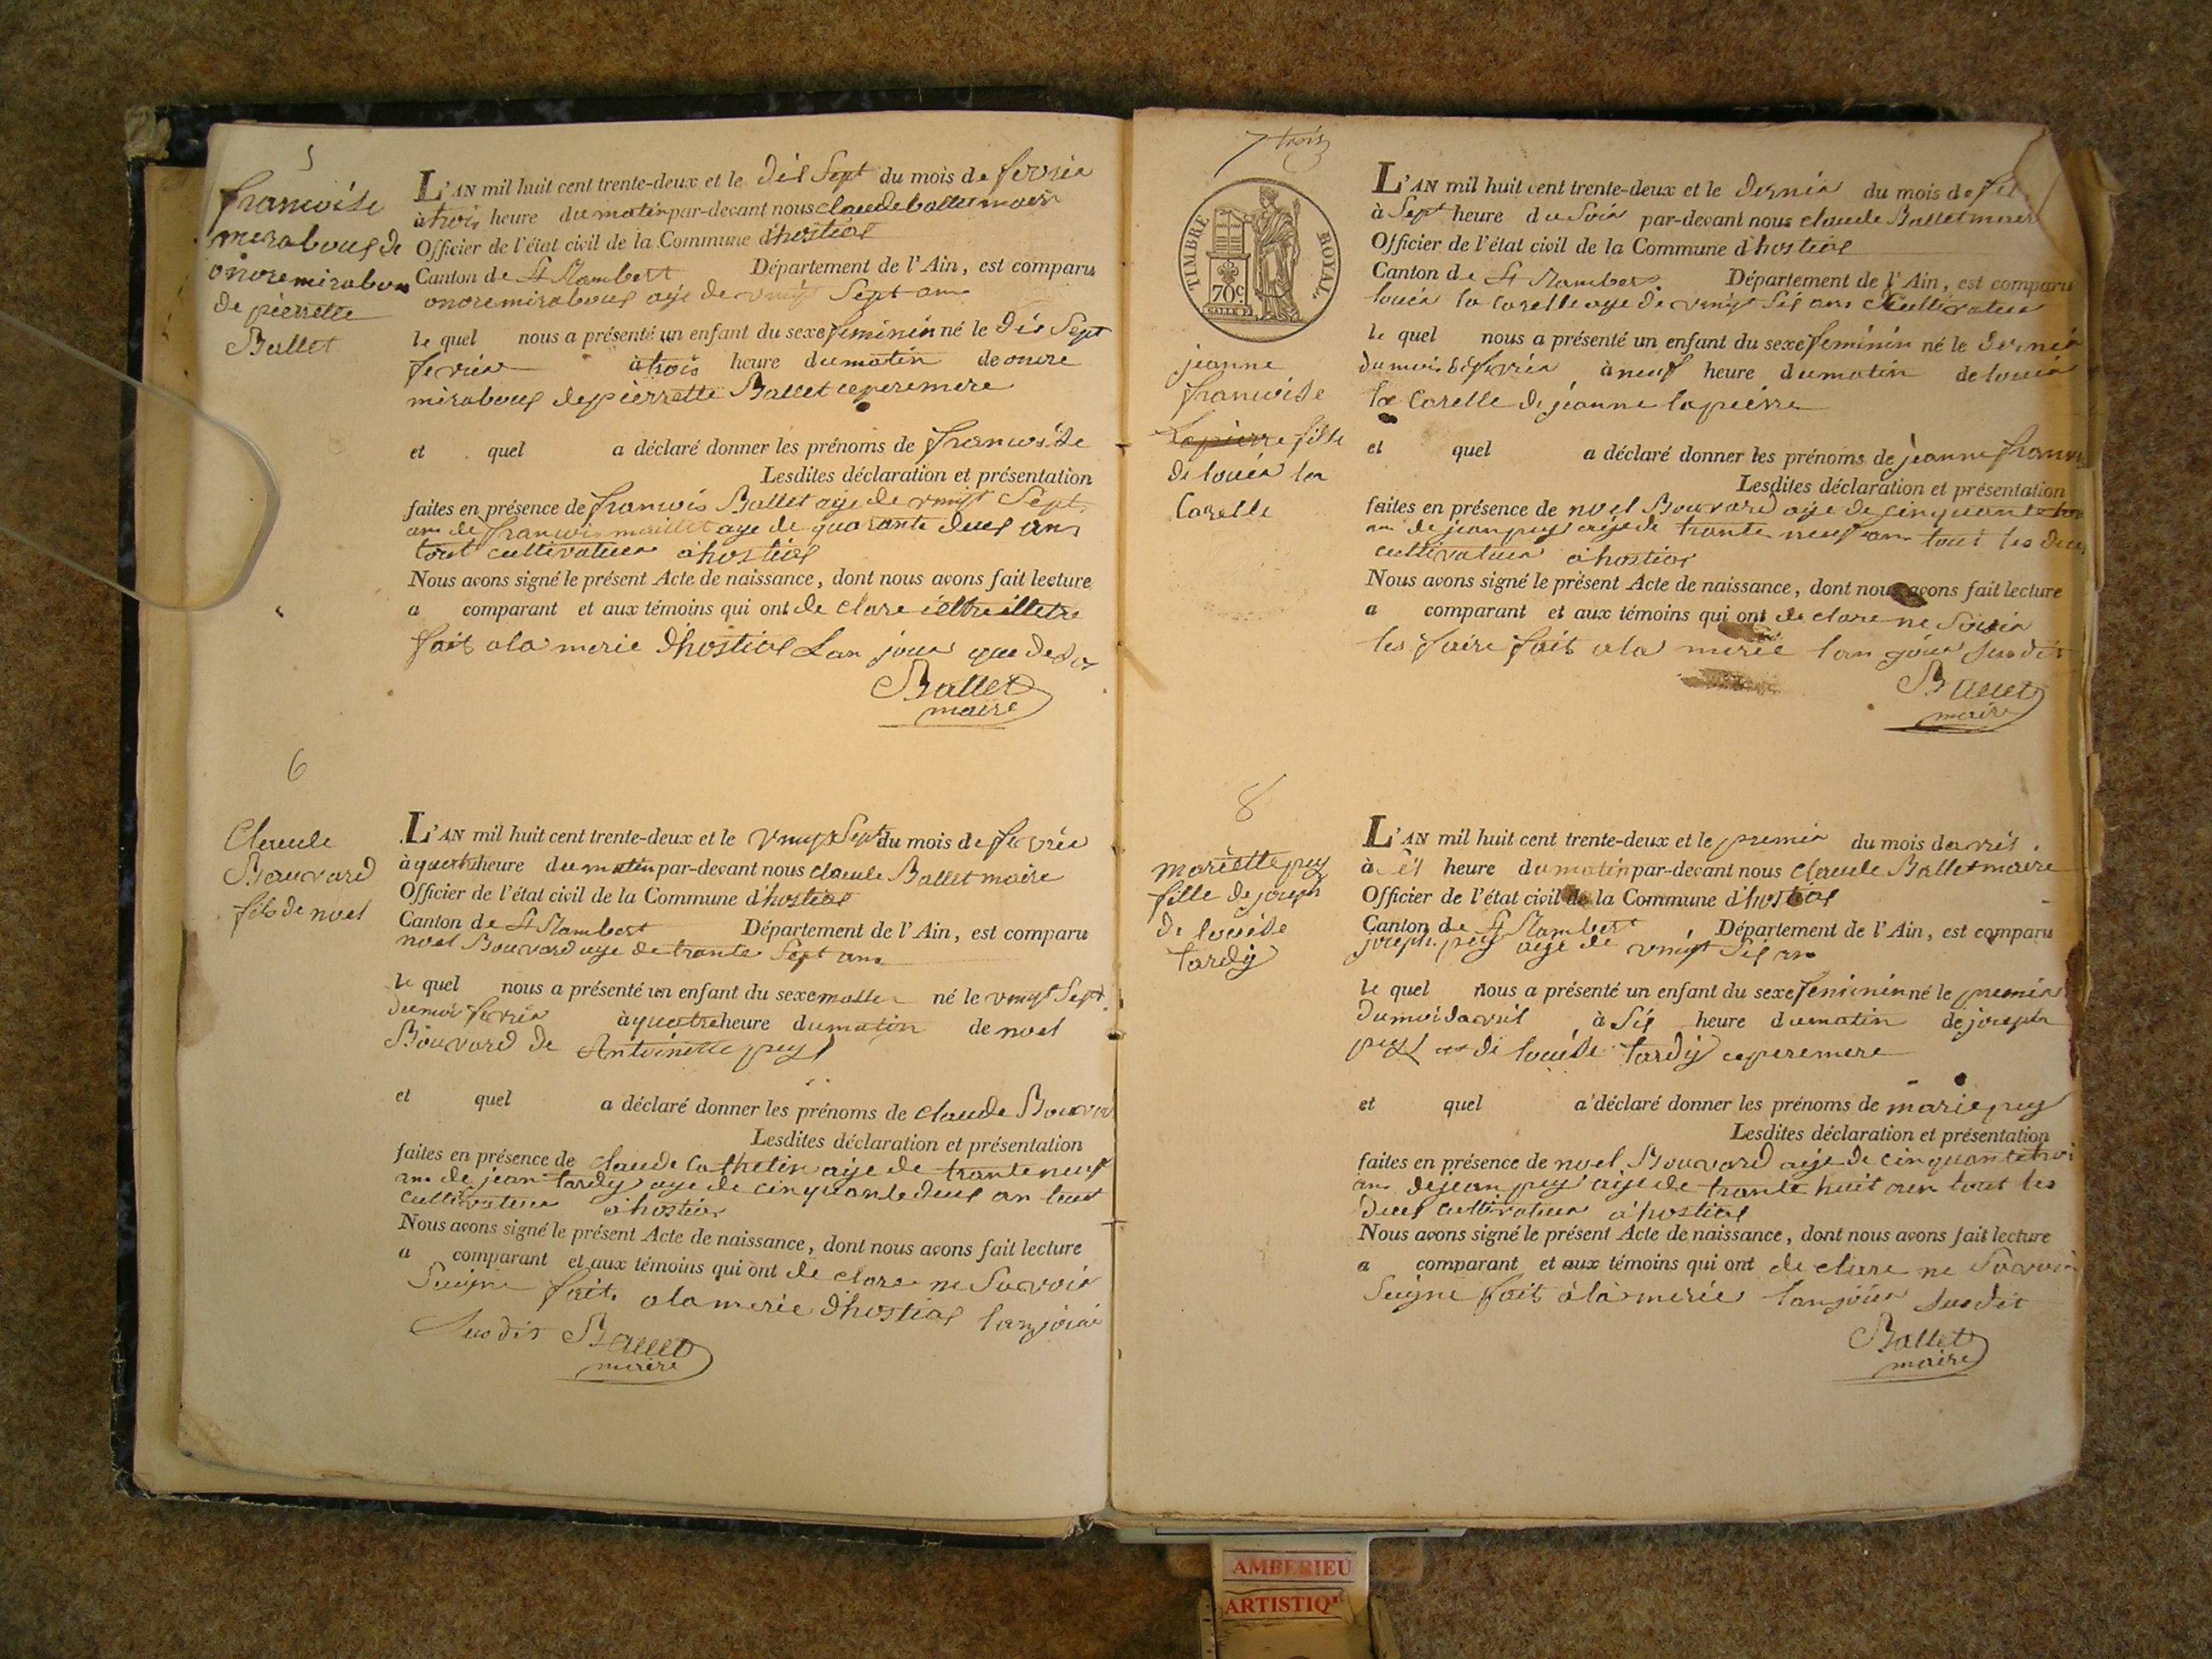 5
francoise
mirabous de
onore mirabou
de pierrette
Ballet
L'AN mil huit cent trente-deux et le dis Sept du mois de fevrier
à trois heure du matin par-devant nous claude ballet maire
Officier de l'état civil de la Commune d'hostias
Canton de St Rambert Département de l'Ain, est comparu
onore mirabous age de vingt Sept ans
le quel nous a présenté un enfant du sexe feminin né le dis Sept
fevrier à trois heure du matin de onore
mirabous de pierrette Ballet ce pere mere
et quel a déclaré donner les prénoms de francoise
Lesdites déclaration et présentation
faites en présence de francois Ballet age de vingt Sept
ans de francois maillet age de quarante deus ans
tout cultivateur a hostias
Nous avons signé le présent Acte de naissance, dont nous avons fait lecture
a comparant et aux témoins qui ont de clare illettre
fait a la merie d'hostias Lan jour que desus
Ballet
maire
6
Claude
Bouvard
fils de noel
L'AN mil huit cent trente-deux et le vingt Sept du mois de fevrier
à quatre heure du matin par-devant nous claude Ballet maire
Officier de l'état civil de la Commune d'hostias
Canton de St Rambert Département de l'Ain, est comparu
noel Bouvard age de trante Sept ans
le quel nous a présenté un enfant du sexe né le vingt Sept
du moi fevrier à quatre heure du matin de noel
Bouvard de Antoinette pey
et quel a déclaré donner les prénoms de claude Bouvard
Lesdites déclaration et présentation
faites en présence de claude Cathelin age de trante neuf
ans de jean tardy age de cinquante deus an tout
cultivateur a hostias
Nous avons signé le présent Acte de naissance, dont nous avons fait lecture
a comparant et aux témoins qui ont de clare ne Savoir
Seigne fait a la merie d'hostias lan jour
Susdit Ballet
maire
7 trois
TIMBRE ROYAL
70 c
jeanne
francoise
Lapierre fille
de louis la
Carelle
L'AN mil huit cent trente-deux et le dernier du mois de
à Sept heure du Soir par-devant nous claude Ballet maire
Officier de l'état civil de la Commune d'hostias
Canton de St Rambert Département de l'Ain, est comparu
louis la Carelle age de vingt Sis ans Cultivateur
le quel nous a présenté un enfant du sexe feminin né le dernier
du mois de fevrier à neuf heure du matin de louis
la Carelle de jeanne lapierre
et quel a déclaré donner les prénoms de jeanne
Lesdites déclaration et présentation
faites en présence de noel Bouvard age de cinquante
ans de jean pey age de trante neuf ans tout les deus
cultivateur a hostias
Nous avons signé le présent Acte de naissance, dont nous avons fait lecture
a comparant et aux témoins qui ont de clare ne Savoir
les faire fait a la merie lan jour susdit
Ballet
maire
8
mariette pey
fille de joseph
de louise
tardy
L'AN mil huit cent trente-deux et le premier du mois davril
à heure du matin par-devant nous claude Ballet maire
Officier de l'état civil de la Commune d'hostias
Canton de St Rambert Département de l'Ain, est comparu
joseph pey age de vingt Sis an
le quel nous a présenté un enfant du sexe feminin né le premier
du moi davril à Sis heure du matin de joseph
pey de louise tardy ce pere mere
et quel a déclaré donner les prénoms de marie pey
Lesdites déclaration et présentation
faites en présence de noel Bouvard age de cinquante troi
ans de jean pey age de trante huit an tout les
deus cultivateur a hostias
Nous avons signé le présent Acte de naissance, dont nous avons fait lecture
a comparant et aux témoins qui ont de clare ne Savoir
Seigne fait a la merie lan jour susdit
Ballet
maire
AMBERIEU
ARTISTIQ